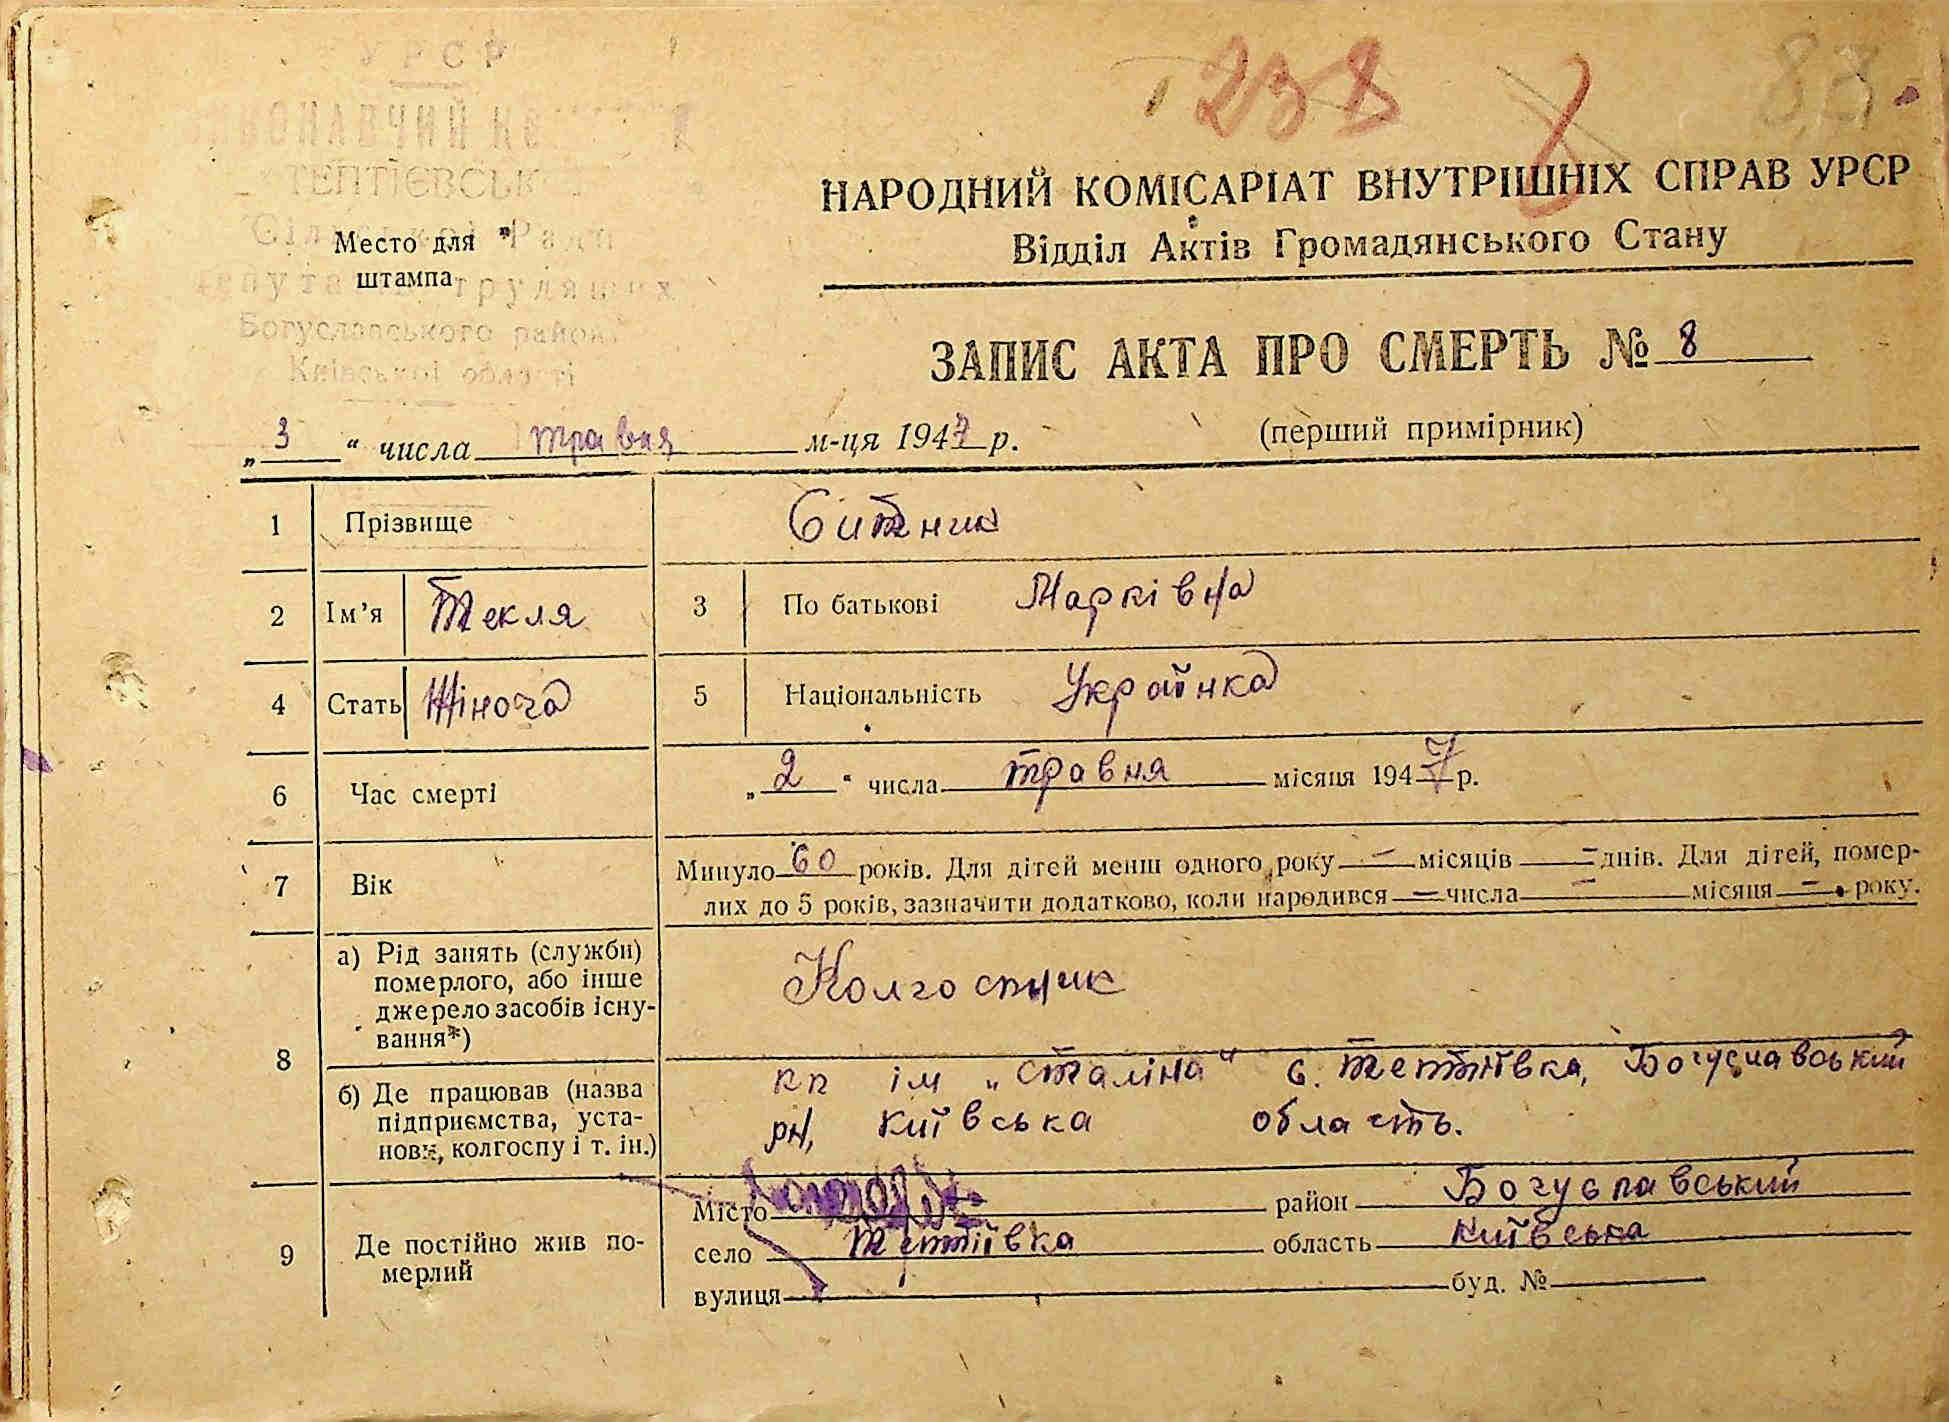 УРСР
ВИКОНАВЧИЙ
ТЕПТІЄВСЬК
Сільської Ради
Место для *
штампа
депутатів трудящих
Богуславського району
Київської області
238
88
НАРОДНИЙ КОМІСАРІАТ ВНУТРІШНІХ СПРАВ УРСР
Відділ Актів Громадянського Стану
ЗАПИС АКТА ПРО СМЕРТЬ № 8
„ 3 “ числа травня м-ця 1947 р. (перший примірник)
1 Прізвище Ситник
2 Ім’я Текля 3 По батькові Марківна
4 Стать Жіноча 5 Національність Українка
6 Час смерті „ 2 “ числа травня місяця 1947 р.
7 Вік Минуло 60 років. Для дітей менш одного року — місяців — днів. Для дітей, помер-
лих до 5 років, зазначити додатково, коли народився — числа — місяця — року.
8 а) Рід занять (служби)
померлого, або інше
джерело засобів існу-
вання*) Колгоспник
б) Де працював (назва
підприємства, уста-
нови, колгоспу і т. ін.)
кп ім „Сталіна“ с. Тептіївка, Богуславський
рн, Київська область.
9 Де постійно жив по-
мерлий
Місто район Богуславський
село Тептіївка область Київська
вулиця буд. №